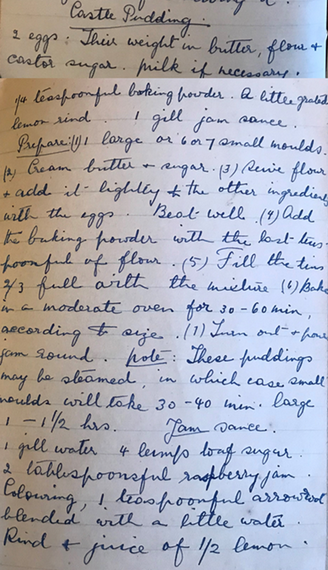 Castle Pudding.
2 eggs. Their weight in butter, flour +
castor sugar. milk if necessary.
1/4 teaspoonful baking powder. A little grated
lemon rind. 1 gill jam sauce.
Prepare: (1) 1 large or 6 or 7 small moulds.
(2) Cream butter + sugar. (3) Seive flour
+ add it lightly to the other ingredients
with the eggs. Beat well. (4) Add
the baking powder with the last teas-
poonful of flour. (5) Fill the tins
2/3 full with the mixture (6) Bake
in a moderate oven for 30-60 min,
according to size. (7) Turn out + pour
jam round. note: These puddings
may be steamed, in which case small
moulds will take 30-40 min. large
1 - 1 1/2 hrs. Jam sauce.
1 gill water 4 lumps loaf sugar.
2 tablespoonsful raspberry jam.
Colouring, 1 teaspoonful arrowroot
blended with a little water.
Rind + juice of 1/2 lemon.